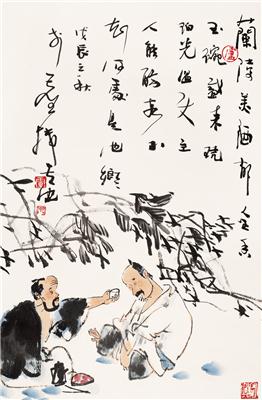 蘭陵美酒郁金香
玉碗盛来琥
珀光但使主
人能醉客不
知何處是他鄉
戊辰之秋